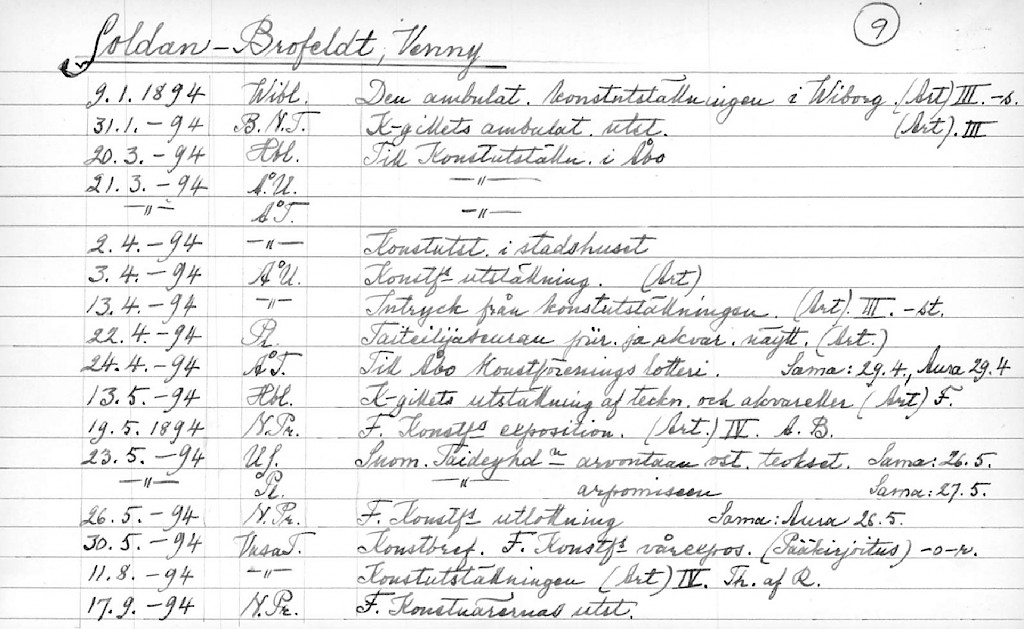 9
Soldan-Brofeldt, Venny
9.1.1894 Wibl. Den ambulat. konstutställningen i Wiborg. (Art) III. -s.
31.1.-94 B.N.T. K-gillets ambulat. utst. (Art). III
20.3.-94 Hbl. Till Konstutställn. i Åbo
21.3.-94 Å.U. —"—
—"— Å.T. —"—
2.4.-94 —"— Konstutst. i stadshuset
3.4.-94 Å.U. Konstfs utställning. (Art)
13.4.-94 —"— Intryck från konstutställningen. (Art). III. -st.
22.4.-94 Pl. Taiteilijaseuran piir. ja akvar. näytt. (Art.)
24.4.-94 Å.T. Till Åbo Konstförenings lotteri. Sama: 29.4., Aura 29.4
13.5.-94 Hbl. K-gillets utställning af teckn. och akvareller (Art) F.
19.5.1894 N.Pr. F. Konstfs exposition. (Art.) IV. A. B.
23.5.-94 U.S. Suom. Taideyhdn arvontaan ost. teokset. Sama: 26.5.
—"— Pl. —"— arpomiseen Sama: 27.5.
26.5.-94 N.Pr. F. Konstfs utlottning Sama: Aura 26.5.
30.5.-94 VasaT. Konstbref. F. Konstfs vårexpos. (Pääkirjoitus) -o-r.
11.8.-94 —"— Konstutställningen (Art) IV. Th. af R.
17.9.-94 N.Pr. F. Konstnärernas utst.